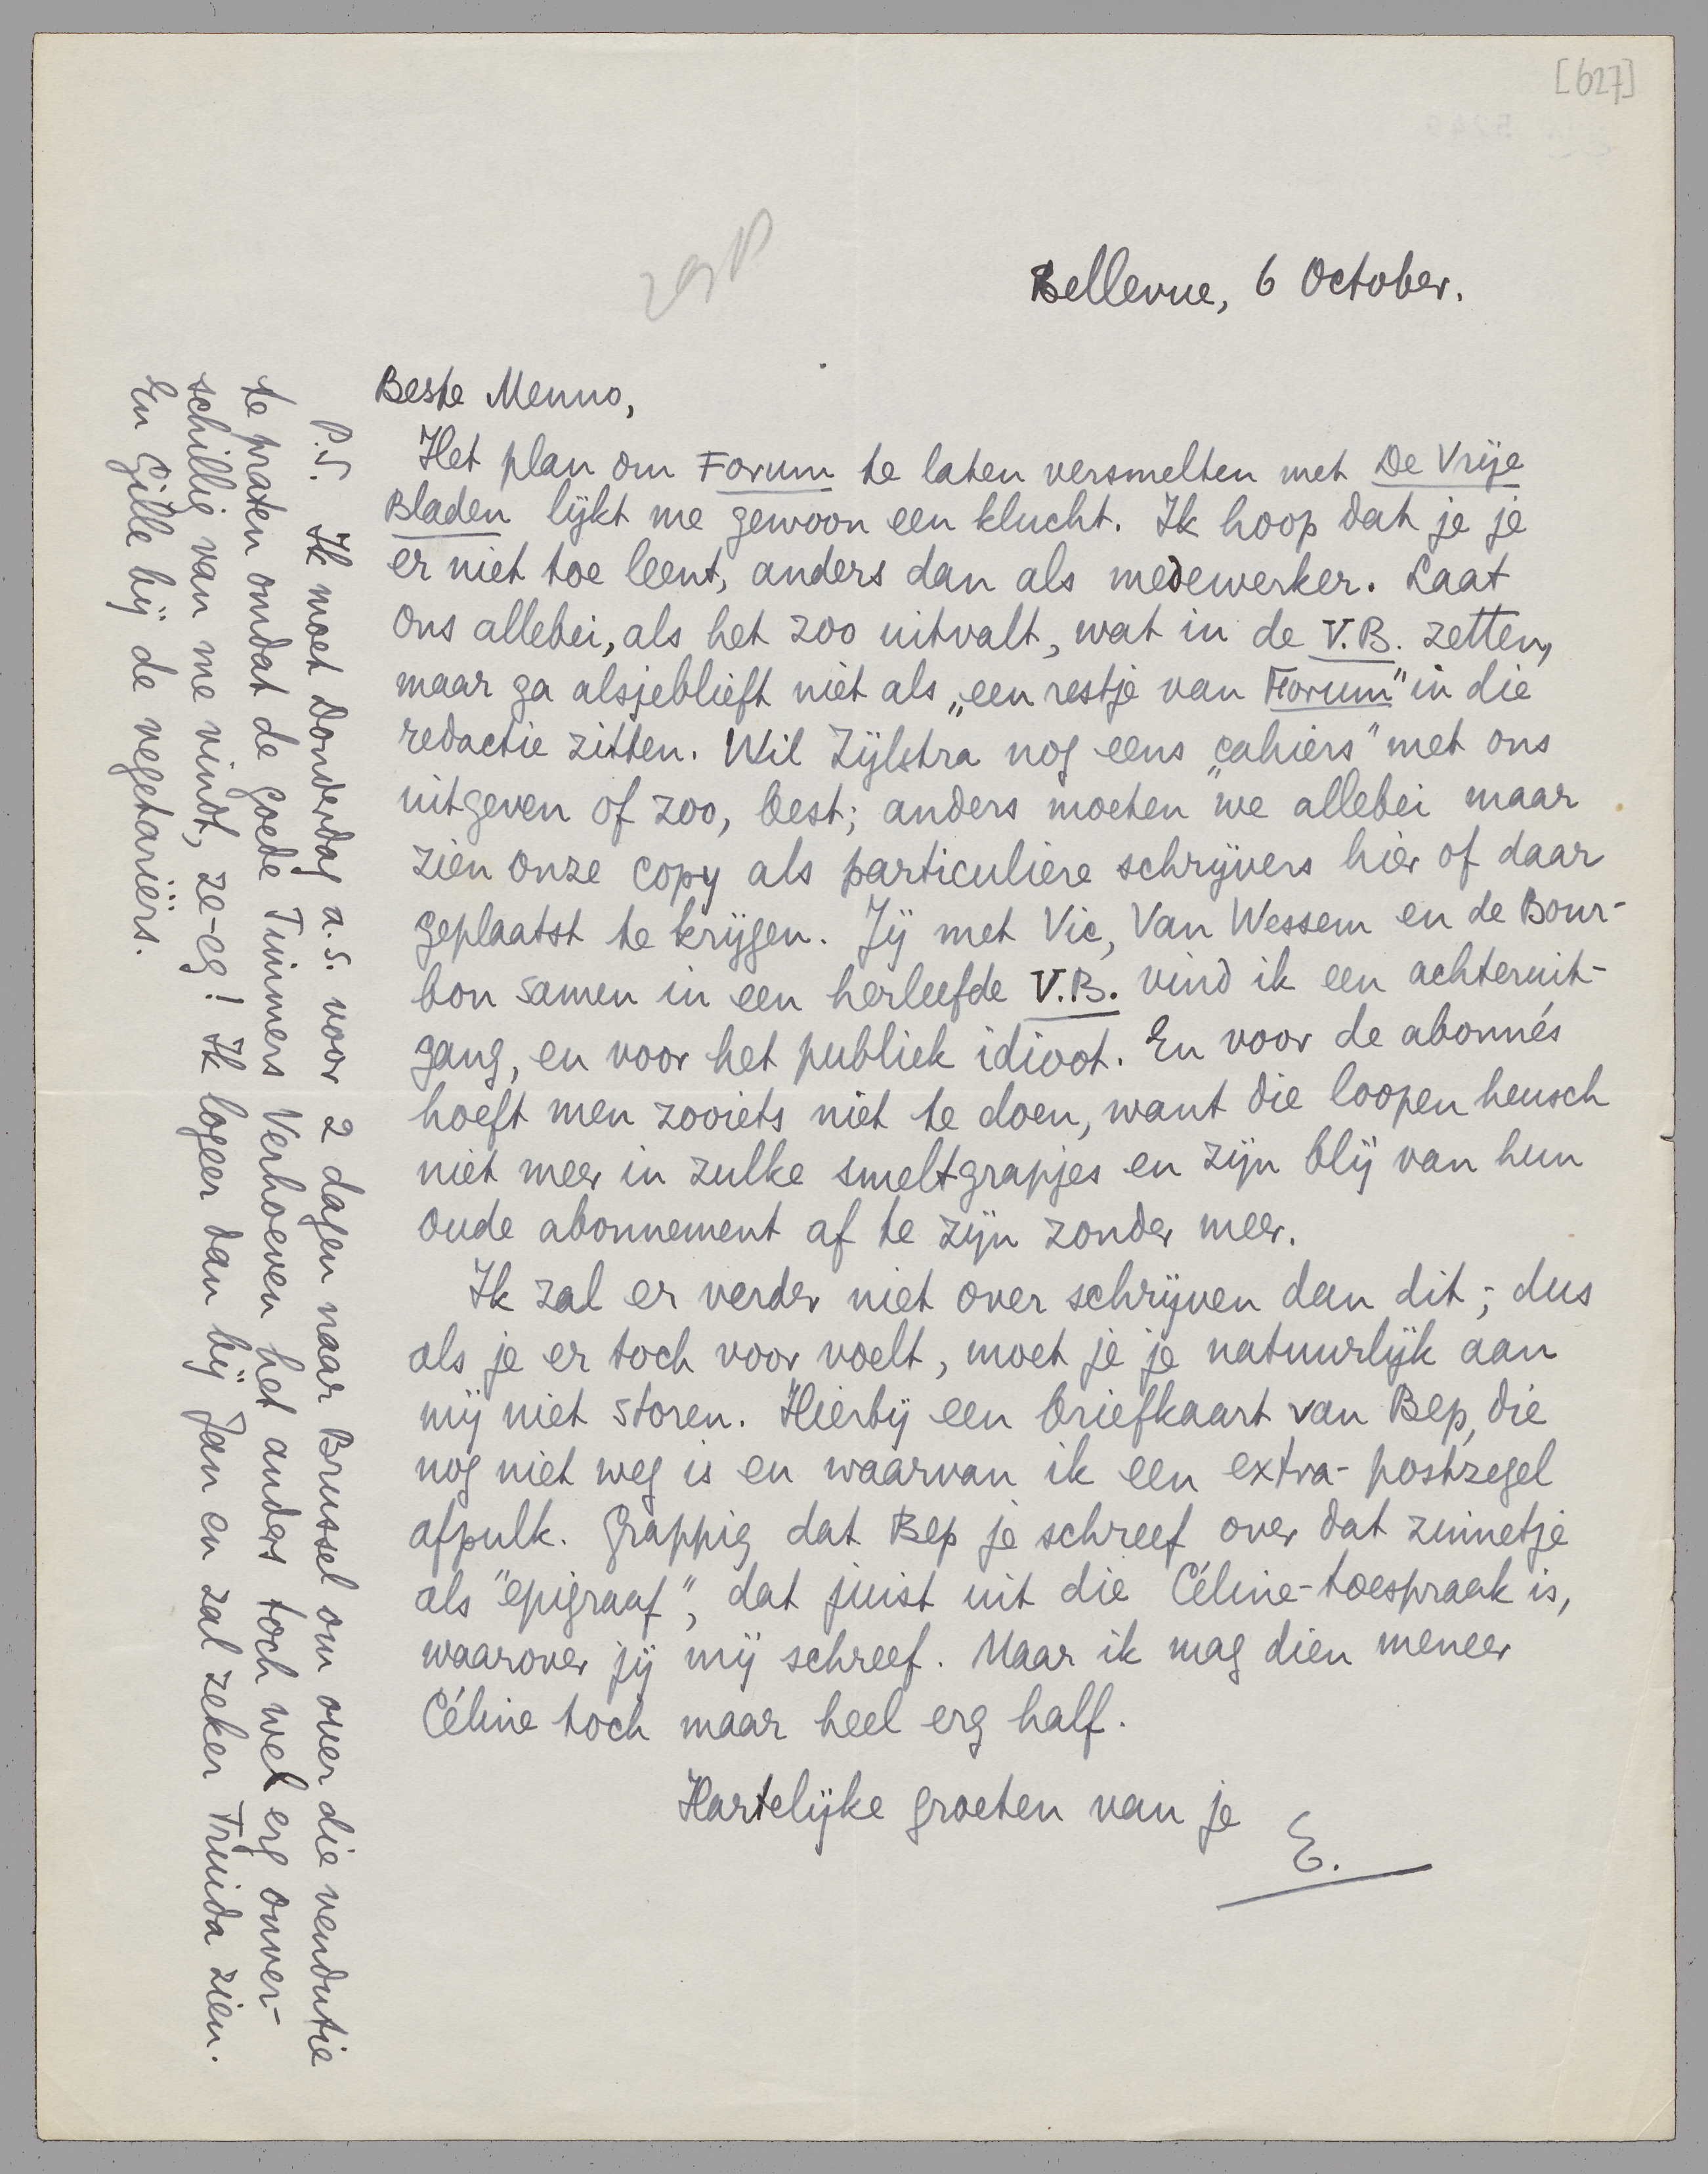 [627]
Bellevue, 6 October.
Beste Menno,
Het plan om Forum te laten versmelten met De Vrije
Bladen lijkt me gewoon een klucht. Ik hoop dat je je
er niet toe leent, anders dan als medewerker. Laat
ons allebei, als het zoo uitvalt, wat in de V.B. zetten,
maar ga alsjeblieft niet als „een restje van Forum" in die
redactie zitten. Wil Zijlstra nog eens „cahiers" met ons
uitgeven of zoo, best; anders moeten we allebei maar
zien onze copy als particuliere schrijvers hier of daar
geplaatst te krijgen. Jij met Vic, Van Wessem en de Bour-
bon samen in een herleefde V.B. vind ik een achteruit-
gang, en voor het publiek idioot. En voor de abonnés
hoeft men zooiets niet te doen, want die loopen heusch
niet meer in zulke smeltgrapjes en zijn blij van hun
oude abonnement af te zijn zonder meer.
Ik zal er verder niet over schrijven dan dit; dus
als je er toch voor voelt, moet je je natuurlijk aan
mij niet storen. Hierbij een briefkaart van Bep, die
nog niet weg is en waarvan ik een extra-postzegel
afpulk. Grappig dat Bep je schreef over dat zinnetje
als "epigraaf", dat juist uit die Céline-toespraak is,
waarover jij mij schreef. Maar ik mag dien meneer
Céline toch maar heel erg half.
Hartelijke groeten van je
E.
P.S. Ik moet Donderdag a.s. voor 2 dagen naar Brussel om over die vendutie
te praten omdat de goede Timmers Verhoeven het anders toch wel erg onver-
schillig van me vindt, ze-eg! Ik logeer dan bij Jan en zal zeker Truida zien.
En Gille bij de vegetariërs.